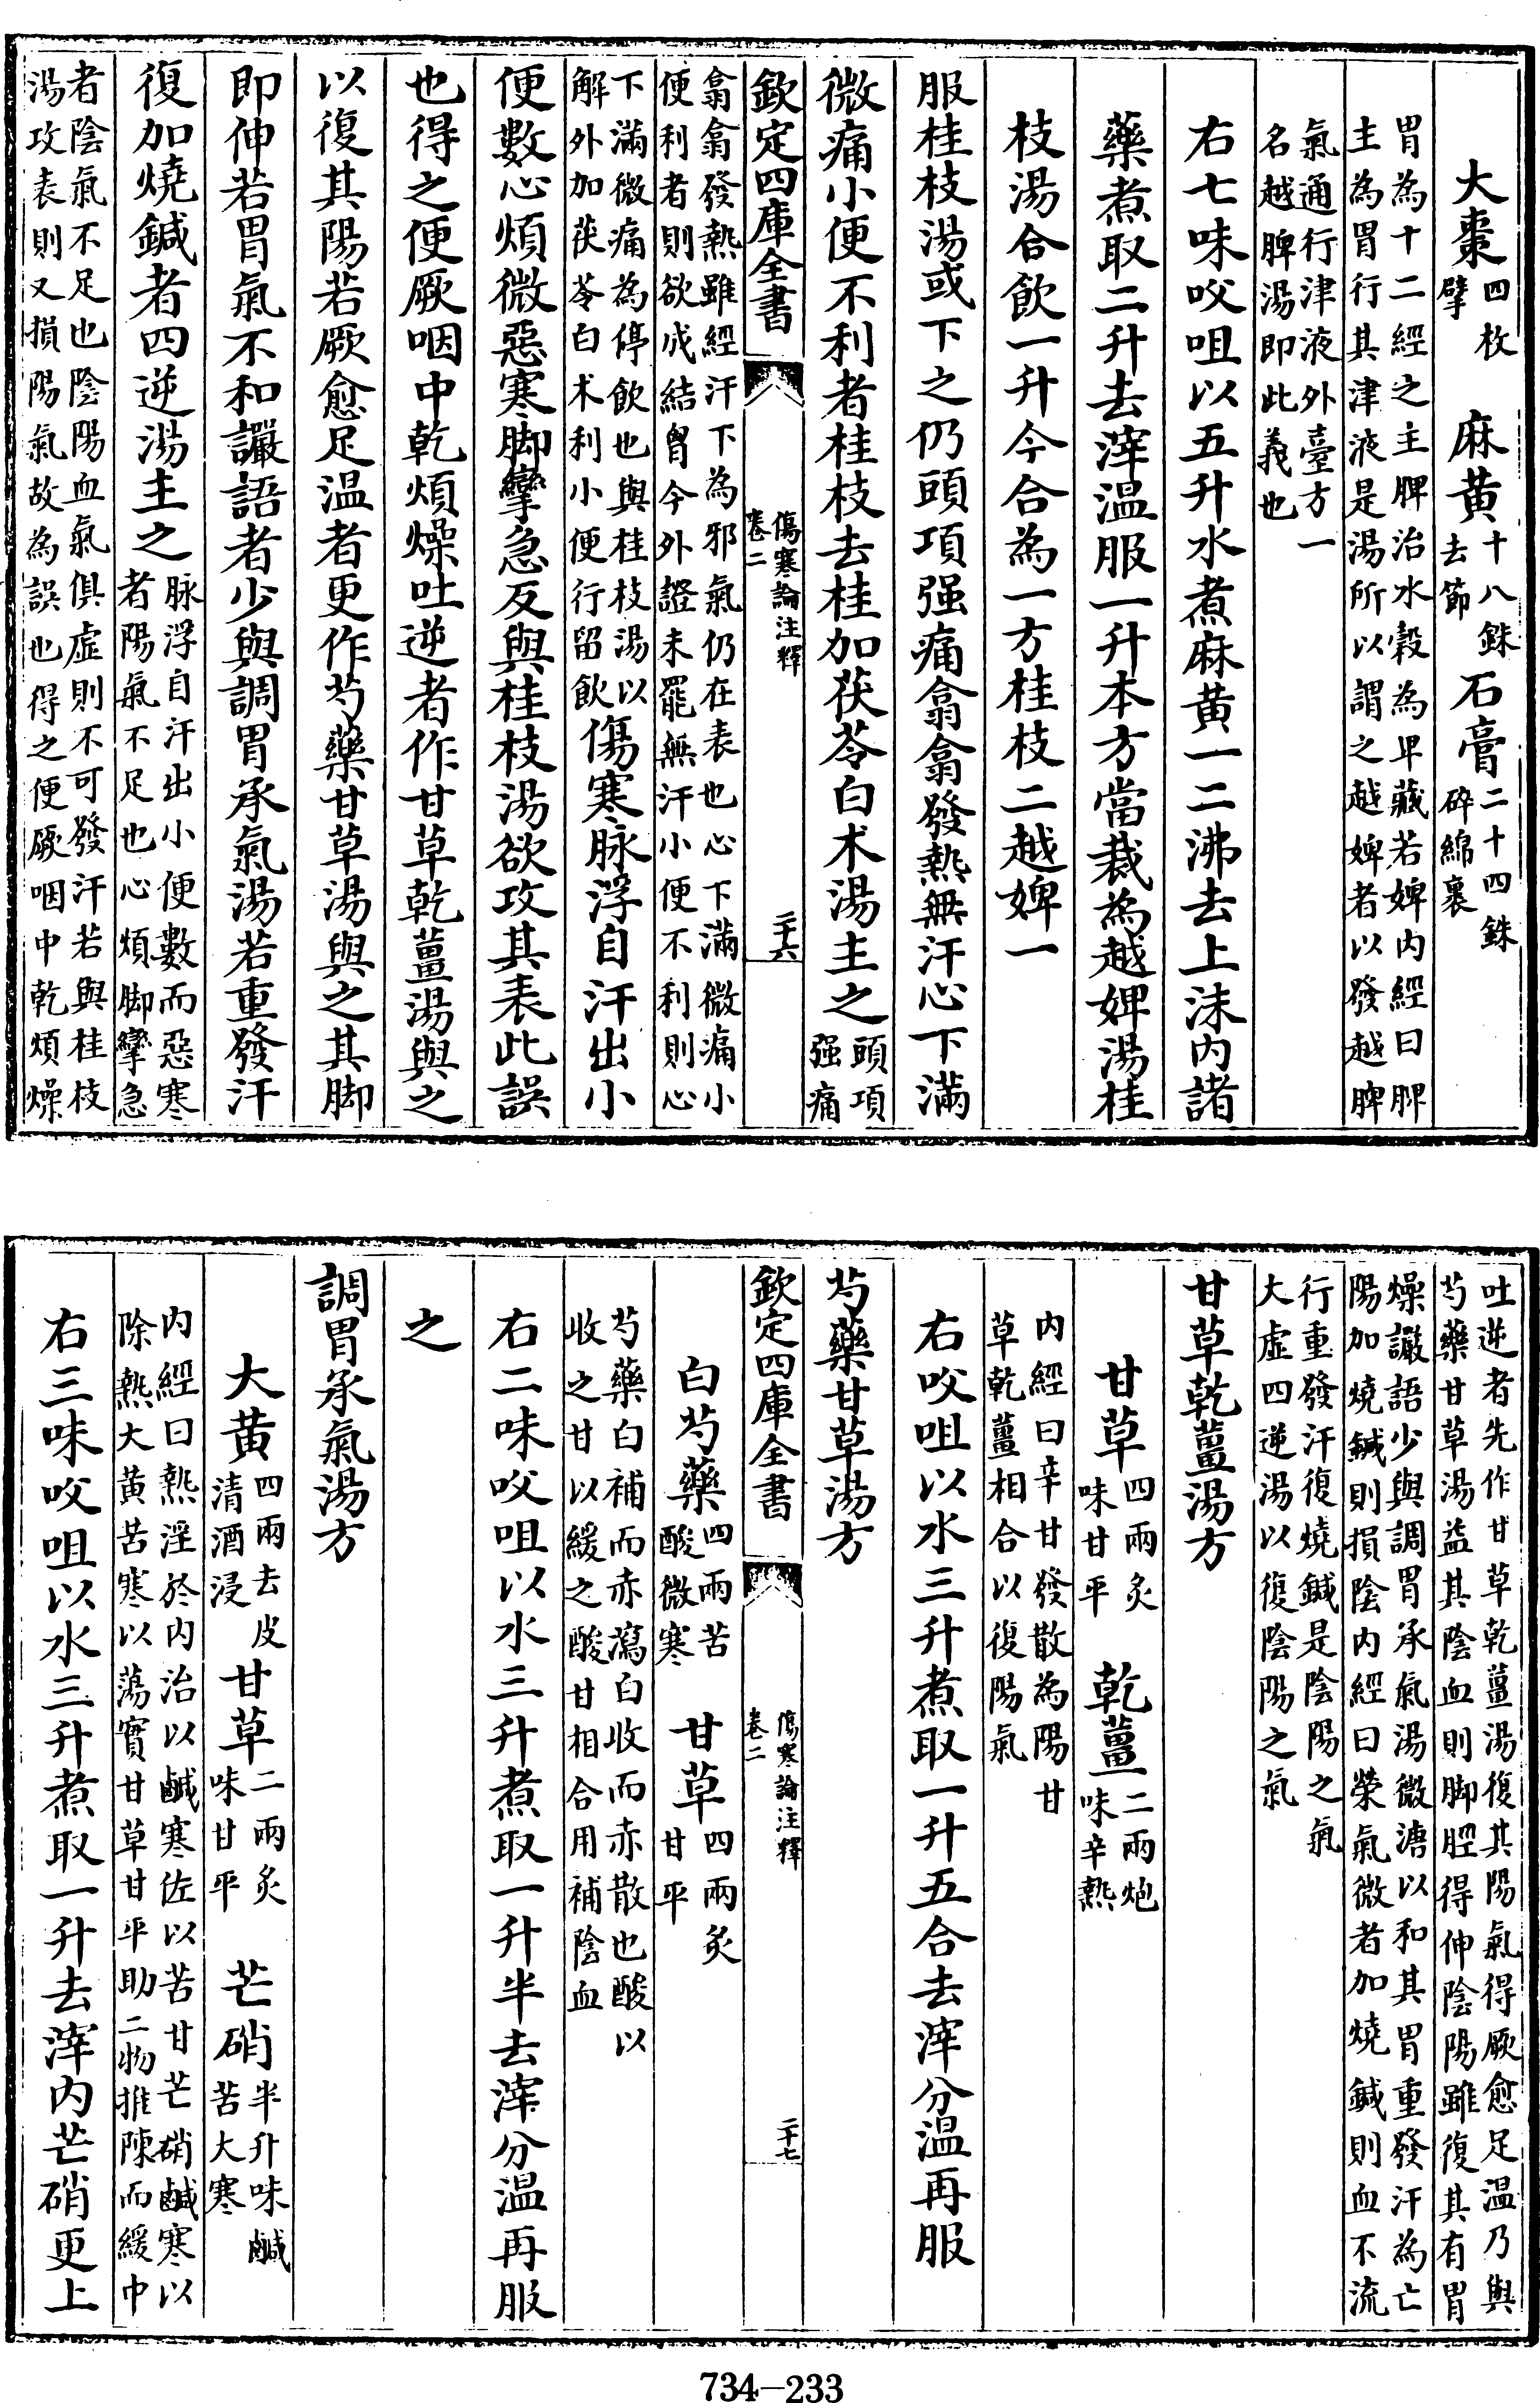 大棗四枚擘　麻黄十八銖去節　石膏二十四銖碎綿裹
胃為十二經之主脾治水穀為卑藏若婢内經曰脾
主為胃行其津液是湯所以謂之越婢者以發越脾
氣通行津液外臺方一
名越脾湯即此義也
右七味㕮咀以五升水煮麻黄一二沸去上沫内諸
藥煮取二升去滓温服一升本方當裁為越婢湯桂
枝湯合飲一升今合為一方桂枝二越婢一
服桂枝湯或下之仍頭項强痛翕翕發熱無汗心下滿
微痛小便不利者桂枝去桂加茯苓白术湯主之頭項
强痛
欽定四庫全書
傷寒論注釋
卷二
二十六
翕翕發熱雖經汗下為邪氣仍在表也心下滿微痛小
便利者則欲成結胷今外證未罷無汗小便不利則心
下滿微痛為停飲也與桂枝湯以
解外加茯苓白术利小便行留飲
傷寒脉浮自汗出小
便數心煩微惡寒脚攣急反與桂枝湯欲攻其表此誤
也得之便厥咽中乾煩燥吐逆者作甘草乾薑湯與之
以復其陽若厥愈足温者更作芍藥甘草湯與之其脚
即伸若胃氣不和讝語者少與調胃承氣湯若重發汗
復加燒鍼者四逆湯主之
脉浮自汗出小便數而惡寒
者陽氣不足也心煩脚攣急
者陰氣不足也陰陽血氣俱虚則不可發汗若與桂枝
湯攻表則又損陽氣故為誤也得之便厥咽中乾煩燥
吐逆者先作甘草乾薑湯復其陽氣得厥愈足温乃與
芍藥甘草湯益其陰血則脚脛得伸陰陽雖復其有胃
燥讝語少與調胃承氣湯微溏以和其胃重發汗為亡
陽加燒鍼則損陰内經曰榮氣微者加燒鍼則血不流
行重發汗復燒鍼是陰陽之氣
大虚四逆湯以復陰陽之氣
甘草乾薑湯方
甘草四兩炙味甘平　乾薑二兩炮味辛熱
内經曰辛甘發散為陽甘
草乾薑相合以復陽氣
右㕮咀以水三升煮取一升五合去滓分温再服
芍藥甘草湯方
欽定四庫全書
傷寒論注釋
卷二
二十七
白芍藥四兩苦酸微寒　甘草四兩炙甘平
芍藥白補而赤瀉白收而赤散也酸以
收之甘以緩之酸甘相合用補陰血
右二味㕮咀以水三升煮取一升半去滓分温再服
之
調胃承氣湯方
大黄四兩去皮清酒浸　甘草二兩炙味甘平　芒硝半升味鹹苦大寒
内經曰熱淫於内治以鹹寒佐以苦甘芒硝鹹寒以
除熱大黄苦寒以蕩實甘草甘平助二物推陳而緩中
右三味㕮咀以水三升煮取一升去滓内芒硝更上
734-233